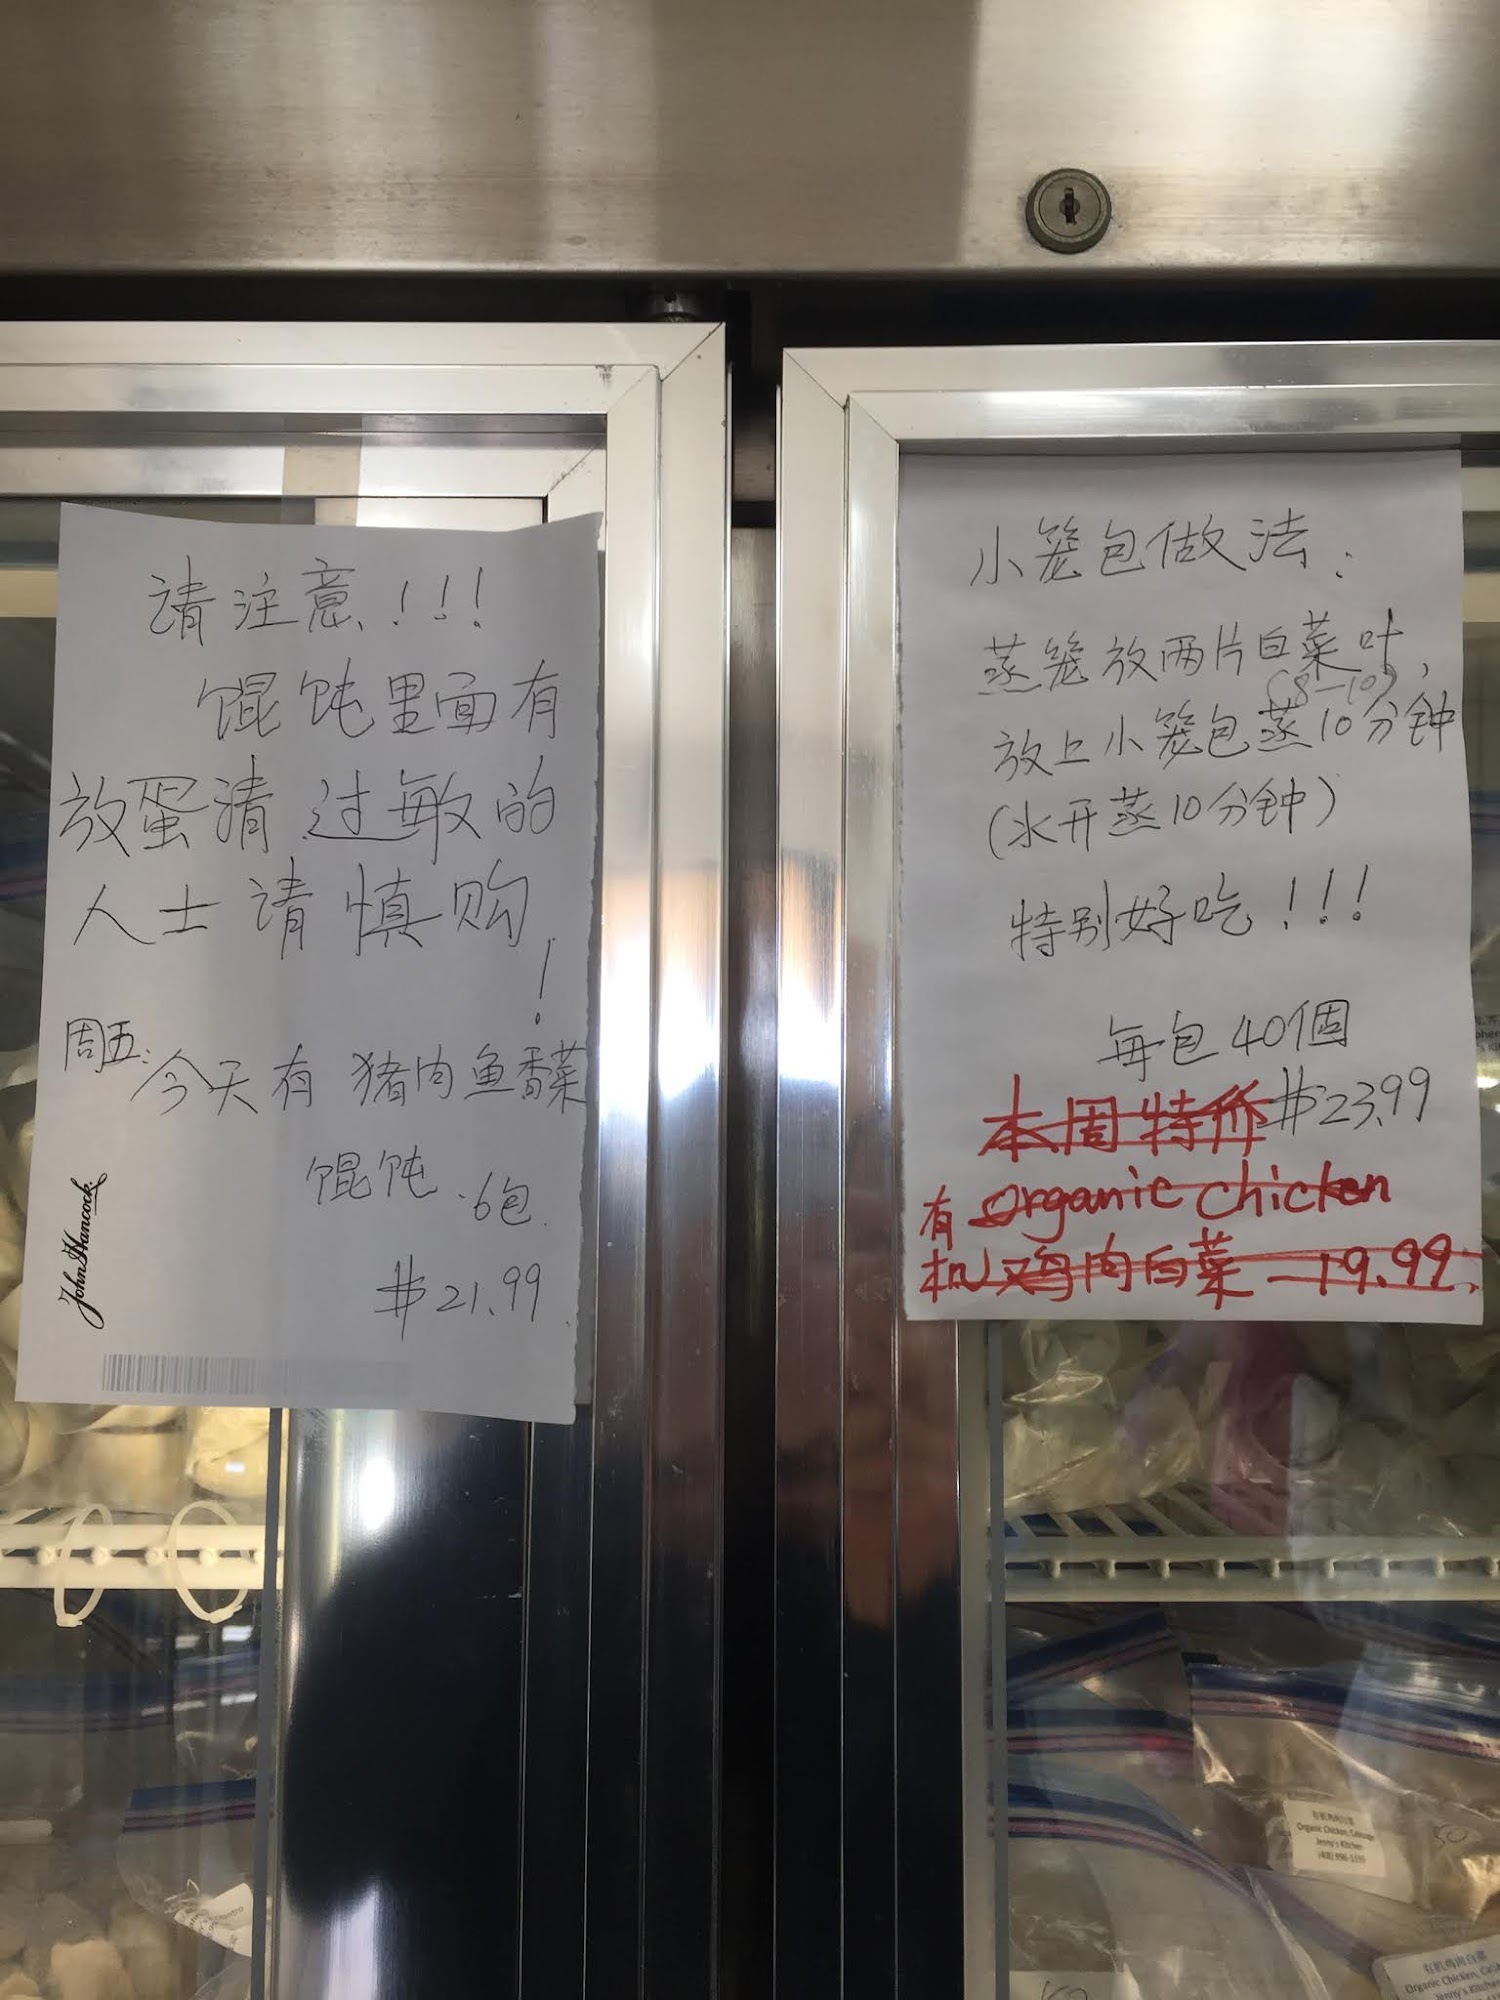 请注意!!!
馄饨里面有
放蛋清 过敏的
人士请慎购
!
周五:
今天有 猪肉鱼香菜
馄饨.6包
$21.99
John Hancock
小笼包做法:
蒸笼放两片白菜叶,
(8-10)
放上小笼包蒸10分钟
(水开蒸10分钟)
特别好吃!!!
每包40個
$23.99
本周特价
有 Organic chicken
机 鸡肉白菜 - 19.99.
有机鸡肉白菜
Organic Chicken, Cabbage
Jenny's Kitchen
50
有机鸡肉白菜
Organic Chicken, Cab
Jenny's Kitchen